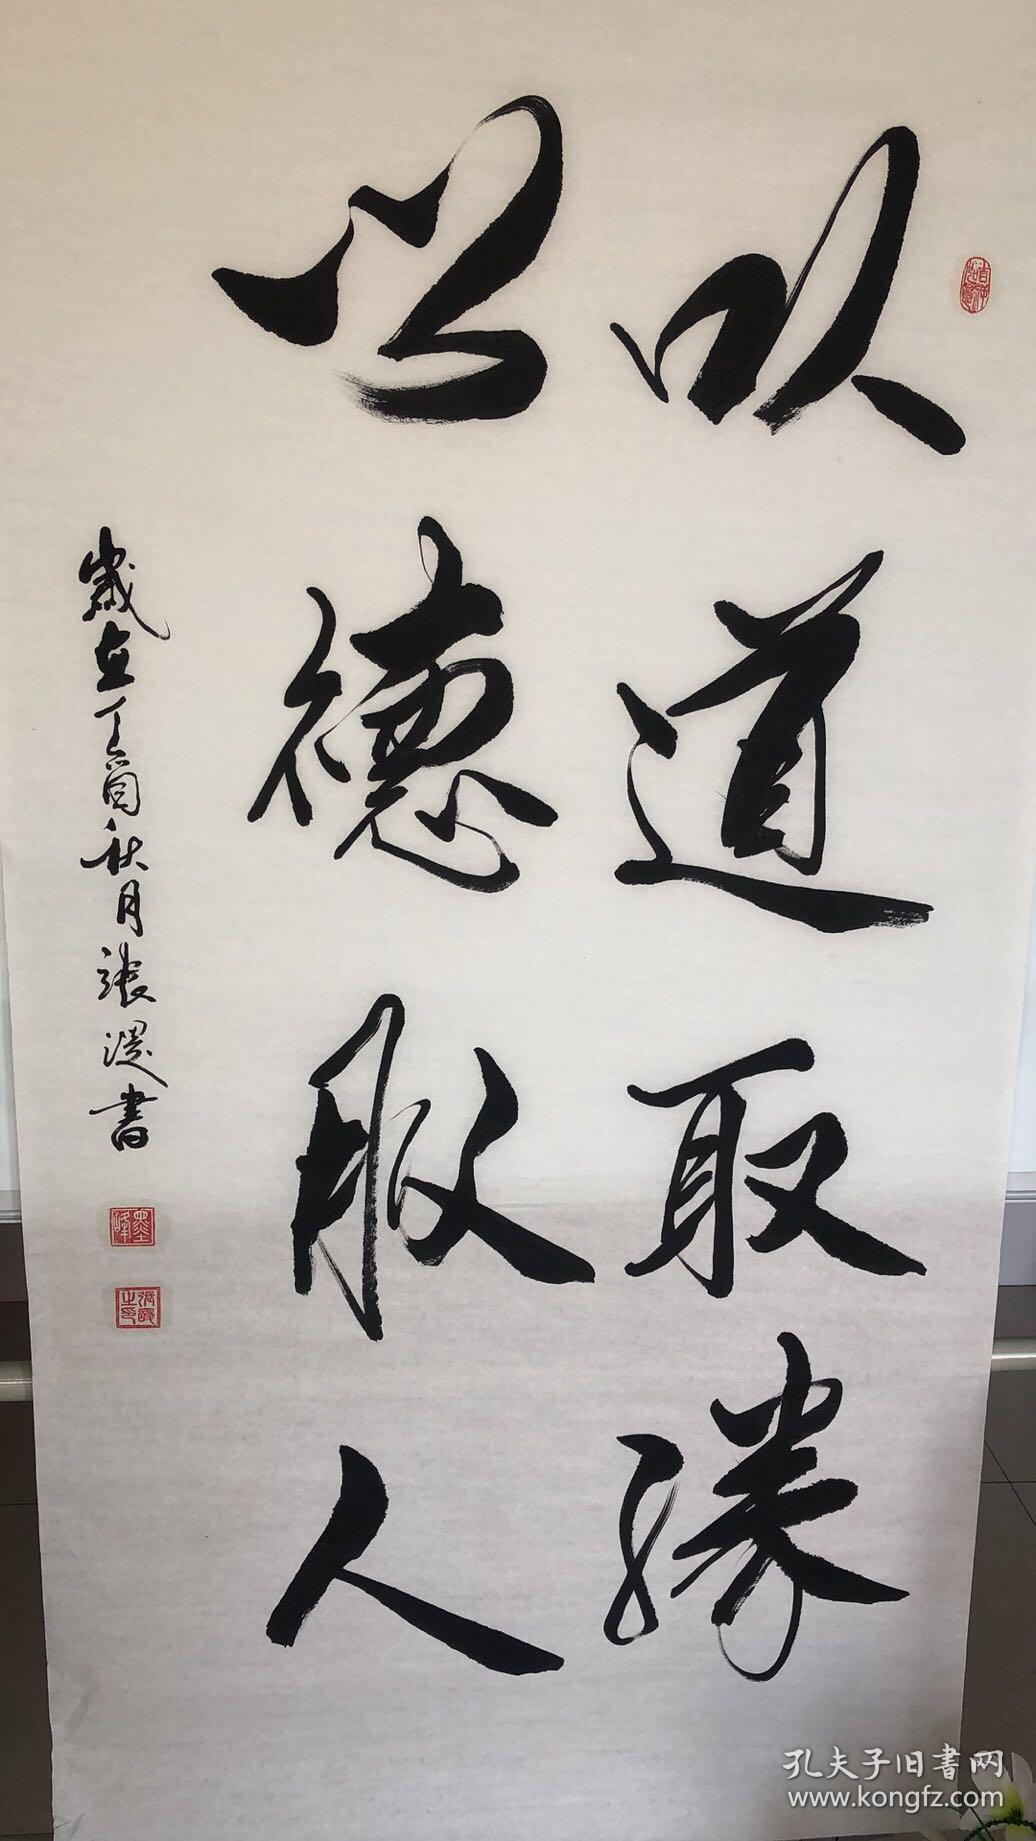 以道取勝
以德服人
歲在丁酉秋月張
書
孔夫子旧書网
www.kongfz.com